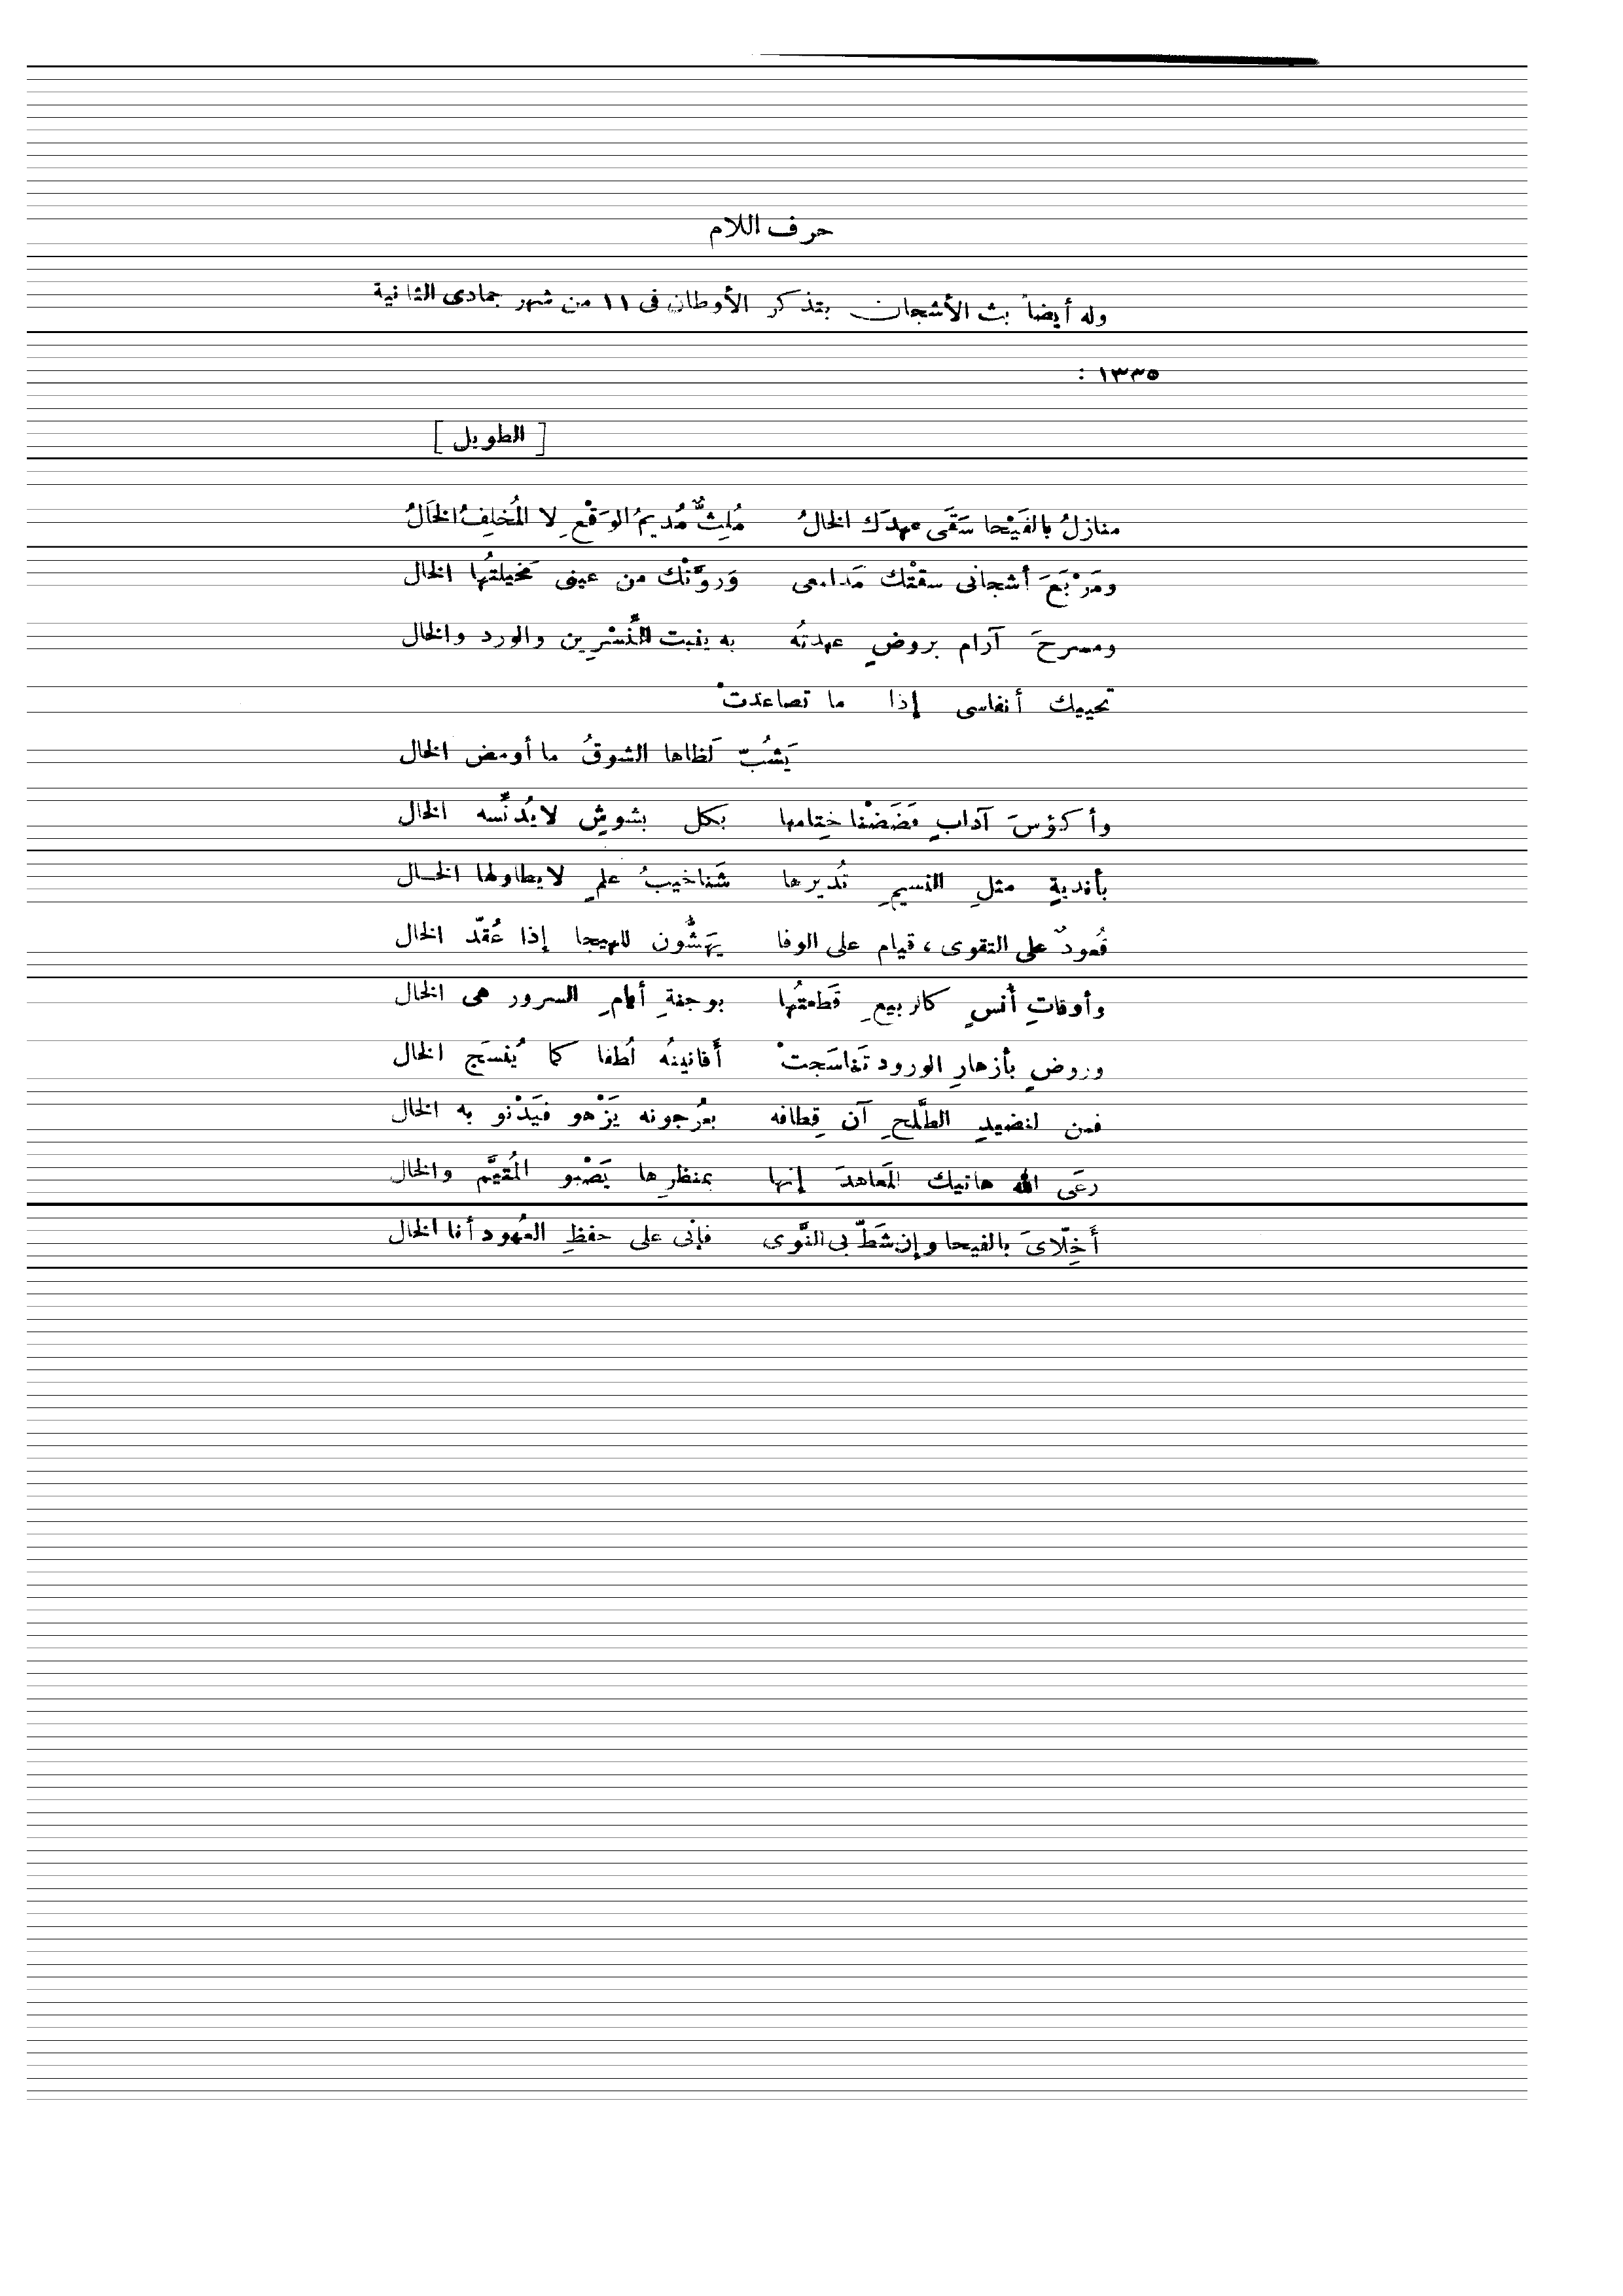 حرف اللام
وله أيضاً بث الأشجان بتذكر الأوطان فى ١١ من شهر جمادى الثانية
١٣٣٥ :
[ الطويل ]
منازلُ بالفَيْحا سَقَى عهدَك الخالُ مُلِثٌّ مُديمُ الوَقْعِ لا المُخلِفُ الخَالُ
ومَرْبَعَ أشجانى سقتْك مَدامعى وَروَّتْك من عينى مَخيلتُها الخال
ومسرحَ آرام بروضٍ عهدتُه به ينبت النَّسْرِين والورد والخال
تحييك أنفاسى إذا ما تصاعدتْ
يَشُبّ لَظاها الشوقُ ما أومض الخال
وأكؤسَ آدابٍ فَضَضْنا خِتامها بكل بشوشٍ لا يُدنِّسه الخال
بأنديةٍ مثلِ النسيمِ تُديرها شَناخيبُ علمٍ لا يطاولها الخال
قُعودٌ على التقوى ، قيام على الوفا يَهَشُّون للهيجا إذا عُقدّ الخال
وأوقاتِ أُنسٍ كالربيعِ قَطعتُها بوجنةِ أيامِ السرور هى الخال
وروضٍ بأزهارِ الورود تَناسَجتْ أَفانينُه لُطفا كما يُنسَج الخال
فمن لنضيدِ الطَّلحِ آن قِطافه بعُرجونه يَزْهو فيَدْنو به الخال
رعَى الله هاتيك المَعاهدَ إنها بمنظرِها يَصْبو المُتيَّم والخال
أَخِلّاىَ بالفيحا وإن شَطّ بى النَّوى فإنى على حفظِ العُهود أنا الخال